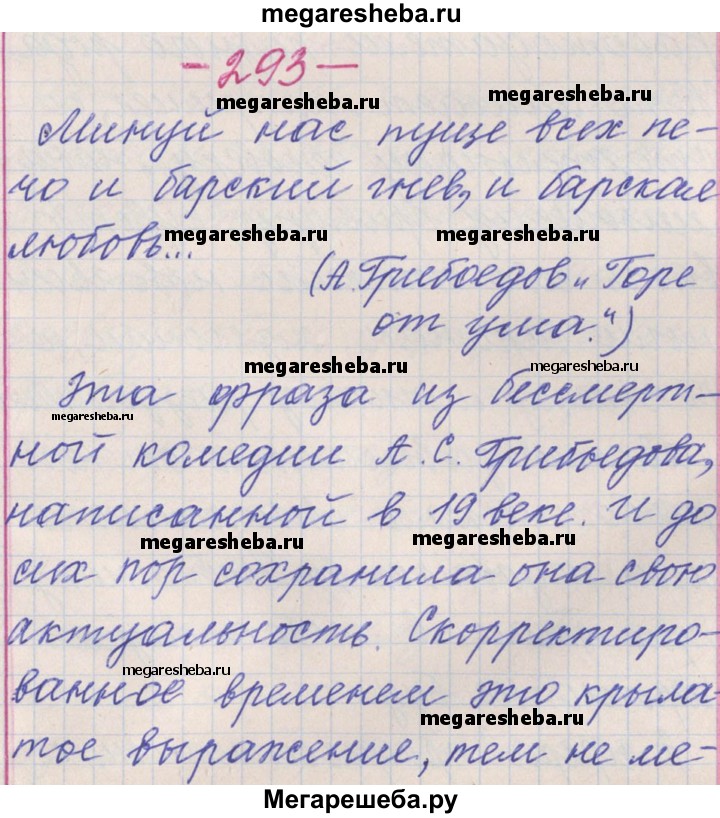 megaresheba.ru
- 293 -
megaresheba.ru
megaresheba.ru
Минуй нас пуще всех пе-
чо и барский гнев, и барская
любовь...
megaresheba.ru
megaresheba.ru
(А. Грибоедов „Горе
от ума.")
megaresheba.ru
megaresheba.ru
Эта фраза из бессмерт-
megaresheba.ru
ной комедии А. С. Грибоедова,
написанной в 19 веке. И до
megaresheba.ru
megaresheba.ru
сих пор сохранила она свою
актуальность. Скорректиро-
megaresheba.ru
ванное временем это крыла
megaresheba.ru
тое выражение, тем не ме-
Мегарешеба.ру